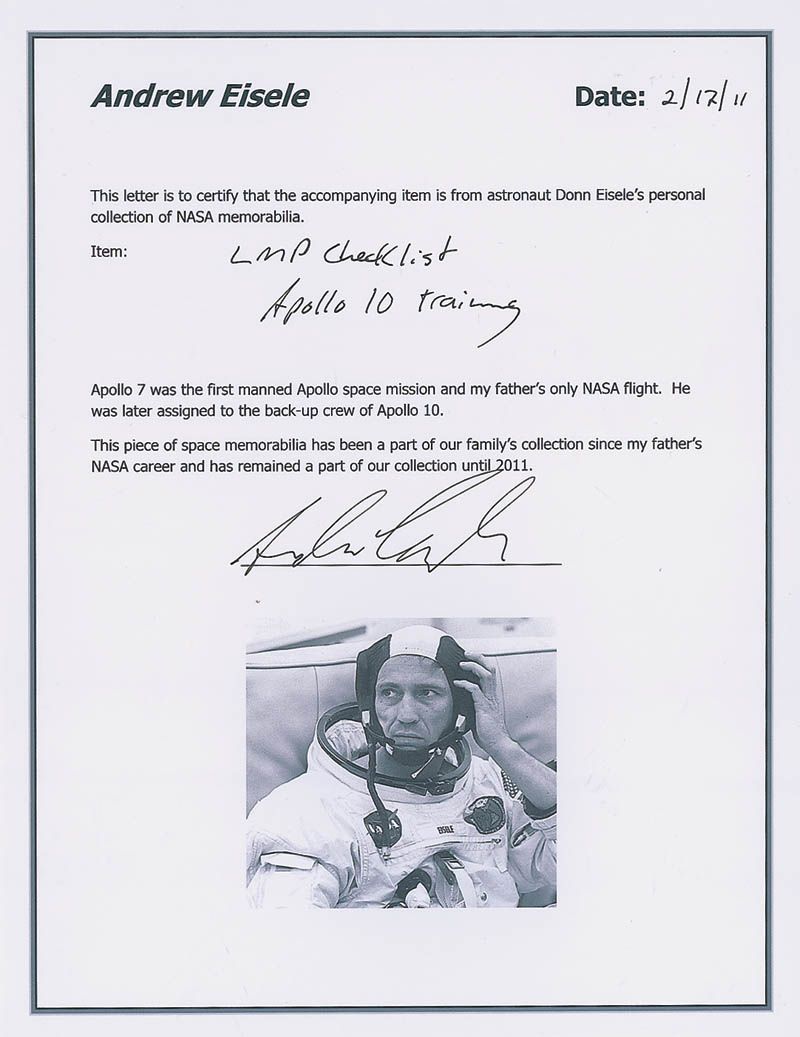 Andrew Eisele
Date: 2/17/11
This letter is to certify that the accompanying item is from astronaut Donn Eisele's personal
collection of NASA memorabilia.
Item: LMP Checklist
Apollo 10 training
Apollo 7 was the first manned Apollo space mission and my father's only NASA flight. He
was later assigned to the back-up crew of Apollo 10.
This piece of space memorabilia has been a part of our family's collection since my father's
NASA career and has remained a part of our collection until 2011.
NASA
EISELE